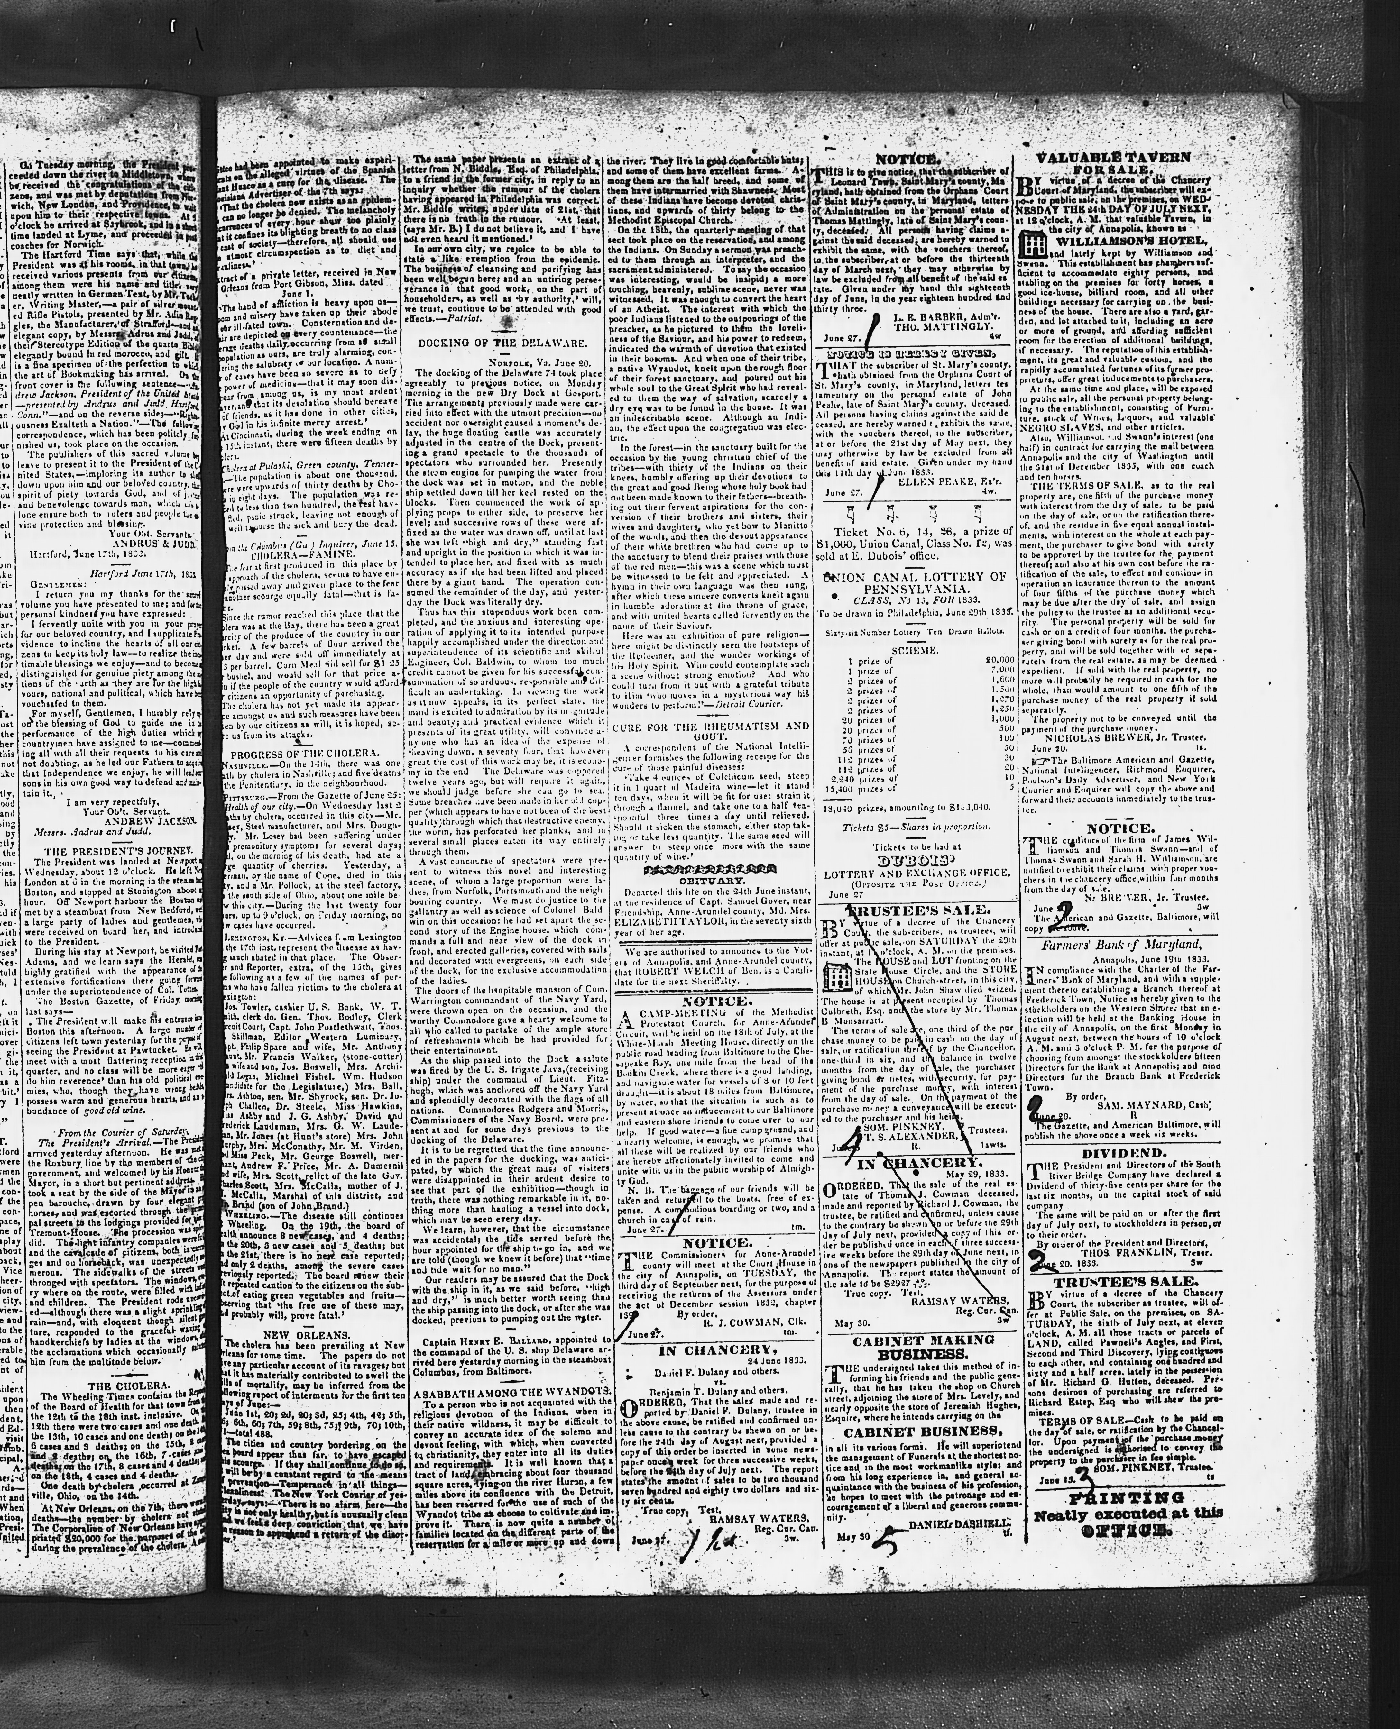 On Tuesday morning, the President
ceeded down the river to Middletown, where
he received the congratulations of the
zens, and was met by deputations from
wich, New London, and Providence, to wait
upon him to their respective towns. At 5
o'clock he arrived at Saybrook, and in a short
time landed at Lyme, and proceeded in
coaches for Norwich.
The Hartford Time says that, while the
President was at his rooms, in that town, he
received various presents from our citizens,
among them were his name and
neatly written in German Text, by Mr.
Writing Master,—a pair of silver mount-
ed Rifle Pistols, presented by Mr.
the Manufacturer, of Strafford—and an
elegant copy, by Messrs. Andrus and Judd,
their Stereotype Edition of the quarto Bible,
elegantly bound in red morocco, and gilt. It
is a fine specimen of the perfection to which
the act of Bookmaking has arrived. On the
front cover is the following sentence—
drew Jackson, President of the United
—presented by Andrus and Judd, Hartford
Conn."—and on the reverse sides—"Right-
ousness Exalteth a Nation."—The following
correspondence, which has been politely fur-
nished us, took place on the occasion.
The publishers of this sacred volume by
leave to present it to the President of the U-
nited States,—imploring its author to shed
down upon him and our beloved country, the
spirit of piety towards God, and of justice
and benevolence towards man, which can a-
lone ensure both to rulers and people the di-
vine protection and blessing.
Your Obt. Servants,
ANDRUS & JUDD.
Hartford, June 17th, 1833.
Hartford June 17th, 1833.
GENTLEMEN:
I return you my thanks for the
volume you have presented to me; and for the
personal kindness you have expressed
I fervently unite with you in your prayer
for our beloved country, and I supplicate Pro-
vidence to incline the hearts of all our citi-
zens to keep its holy law—to realize the ines-
timable blessings we enjoy—and to become
distinguished for genuine piety among the na-
tions of the earth as they are for the high fa-
vours, national and political, which have been
vouchsafed to them.
For myself, Gentlemen, I humbly rely on
the blessing of God to guide me in the
performance of the high duties which my
countrymen have assigned to me—commend-
ing all with all their requests to his care,
not doubting, as he led our Fathers to acquire
that Independence we enjoy, he will lead their
sons in his own good way to defend and main-
tain it,
I am very respectfully,
Your Ob't. Servant.
ANDREW JACKSON.
Messrs. Andrus and Judd,
THE PRESIDENT'S JOURNEY.
The President was landed at Newport on
Wednesday, about 12 o'clock. He left New
London at 6 in the morning in the steamboat
Boston, and stopped at Stonington about an
hour. Off Newport harbour the Boston was
met by a steamboat from New Bedford, with
a large party of ladies and gentlemen, who
were received on board her, and introduced
to the President.
During his stay at Newport, he visited Fort
Adams, and we learn says the Herald, was
highly gratified with the appearance of the
extensive fortifications there going forward
under the superintendence of Col. Totten.
The Boston Gazette, of Friday morning
last says—
The President will make his entrance into
Boston this afternoon. A large number of
citizens left town yesterday for the purpose of
seeing the President at Pawtucket. He will
meet with a most flattering reception in this
quarter, and no class will be more eager to
do him reverence' than his old political ene-
mies, who, though they have wrong heads
possess warm and generous hearts, and an a-
bundance of good old wine.
From the Courier of Saturday.
The President's Arrival.—The President
arrived yesterday afternoon. He was met at
the Roxbury line by the members of the city
government, and welcomed by his Honor the
Mayor, in a short but pertinent address. He
took a seat by the side of the Mayor in an
open barouche, drawn by four elegant
horses, and was escorted through the princi-
pal streets to the lodgings provided for him at
Tremont-House. The procession was splen-
did. The light infantry companies were full,
and the cavalcade of citizens, both in carria-
ges and on horseback, was unexpectedly nu-
merous. The sidewalks of the streets were
thronged with spectators. The windows, eve-
ry where on the route, were filled with ladies
and children. The President rode uncover-
ed—although there was a slight sprinkling of
rain—and, with eloquent though silent ges-
ture, responded to the graceful waving of
handkerchiefs by ladies at the windows, and
the acclamations which occasionally saluted
him from the multitude below.
THE CHOLERA.
The Wheeling Times contains the Reports
of the Board of Health for that town from
the 12th to the 18th inst. inclusive. On the
12th there were two cases and one death; on
the 13th, 10 cases and one death; on the 14th
6 cases and 3 deaths; on the 15th, 8 cases
and 2 deaths; on the 16th, 7 cases and 4
deaths; on the 17th, 8 cases and 4 deaths;
on the 18th, 4 cases and 4 deaths.
One death by cholera, occurred at Zanes-
ville, Ohio, on the 14th.
At New Orleans, on the 7th, there were
deaths—the number by cholera not stated.
The Corporation of New Orleans have appro-
priated $20,000 for the purposes of the
during the prevalence of the cholera.
had been appointed to make experi-
on the alleged virtues of the Spanish
Huaco as a cure for the disease. The
Louisiana Advertiser of the 7th says:
"That the cholera now exists as an epidem-
can no longer be denied. The melancholy
occurrences of every hour show too plainly
that it confines its blighting breath to no class
of society—therefore, all should use
utmost circumspection as to diet and
of a private letter, received in New
Orleans from Port Gibson, Miss. dated
June 1.
The hand of affliction is heavy upon us—
and misery have taken up their abode
our ill-fated town. Consternation and de-
are depicted on every countenance—the
average deaths daily, occurring from so small
population as ours, are truly alarming, con-
sidering the salubrity of our location. A num-
of cases have been so severe as to defy
power of medicine—that it may soon dis-
appear from among us, is my most ardent
that its desolation should bereave
of friends, as it has done in other cities,
God in his infinite mercy arrest."
At Cincinnati, during the week ending on
15th instant, there were fifteen deaths by
Cholera at Pulaski, Green county, Tennes-
—The population is about one thousand.
were upwards of thirty deaths by Cho-
in eight days. The population was re-
to less than two hundred, the rest hav-
fled, panic struck, leaving not enough of
well to nurse the sick and bury the dead.
From the Columbus (Ga.) Inquirer, June 15.
CHOLERA—FAMINE.
The fear at first produced in this place by
approach of the cholera, seems to have en-
passed away and given place to the fear
another scourge equally fatal—that is fa-
Since the rumor reached this place that the
cholera was at the Bay, there has been a great
scarcity of the produce of the country in our
market. A few barrels of flour arrived the
day and were sold off immediately at
per barrel. Corn Meal did sell for $1 25
bushel, and would sell for that price a-
if the people of the country would afford
citizens an opportunity of purchasing.
The cholera has not yet made its appear-
amongst us and such measures have been
by our citizens as will, it is hoped, se-
us from its attacks.
PROGRESS OF THE CHOLERA.
NASHVILLE.—On the 14th, there was one
death by cholera in Nashville; and five deaths
the Penitentiary, in the neighborhood.
PITTSBURG.—From the Gazette of June 25:
Health of our city.—On Wednesday last 2
deaths by cholera, occurred in this city—Mr.
Steel manufacturer, and Mrs. Doug-
Mr. Losey had been suffering under
premonitory symptoms for several days;
on the morning of his death, had ate a
large quantity of cherries. Yesterday, a
German, by the name of Cope, died in this
city, and a Mr. Pollock, at the steel factory,
the south side of Ohio, about one mile be-
the city.—During the last twenty four
hours, up to 9 o'clock, on Friday morning, no
new cases have occurred.
LEXINGTON, KY.—Advices from Lexington
the 17th inst. represent the disease as hav-
much abated in that place. The Obser-
and Reporter, extra, of the 15th, gives
following as a few of the names of per-
who have fallen victims to the cholera at
Lexington:
Jos. Towler, cashier U. S. Bank, W. T.
clerk do. Gen. Thos. Bodley, Clerk
Circuit Court, Capt. John Postlethwait, Thos.
Skillman, Editor Western Luminary,
Philip Spare and wife, Mr. Anthony
Mr. Francis Walker, (stone-cutter)
wife and son, Jos. Boswell, Mrs. Archi-
Logan, Michael Fishel. Wm. Hudson
(candidate for the Legislature,) Mrs. Ball,
Ashton, sen. Mr. Shyrock, sen. Dr. Jo-
Challen, Dr. Steele, Miss Hawkins,
Ashby and J. G. Ashby, David and
Frederick Laudeman, Mrs. G. W. Laude-
Mr. Jones (at Hunt's store) Mrs. John
Mrs. McConathy, Mr. M. Virden,
Mr. George Boswell, mer-
Andrew F. Price, Mr. A. Dumesnil
and wife, Mrs. Scott, relict of the late Gov.
Charles Scott, Mrs. McCalla, mother of J.
McCalla, Marshal of this district, and
Brand (son of John Brand.)
WHEELING.—The disease still continues
Wheeling. On the 19th, the board of
health announce 8 new cases, and 4 deaths;
the 20th, 3 new cases and 3 deaths; but
the 21st, there is no new case reported;
only 2 deaths, among the severe cases
previously reported. The board renew their
repeated caution to the citizens on the sub-
ject of eating green vegetables and fruits—
observing that 'the free use of these may,
probably will, prove fatal.'
NEW ORLEANS.
The cholera has been prevailing at New
Orleans for some time. The papers do not
any particular account of its ravages; but
it has materially contributed to swell the
bills of mortality, may be inferred from the
following report of interments for the first 10
days of June:—
June 1st, 20; 2d, 20; 3d, 25; 4th, 42; 5th,
6th, 60; 7th, 59; 8th, 75; 9th, 70; 10th,
—total 488.
The cities and country bordering on the
seaboard appear thus far, to have escaped
scourge. If they shall continue to do so,
it will be by a constant regard to the means
prevention—Temperance in all things—
Cleanliness! The New York Courier of yes-
terday, says:—There is no alarm here—the
is not only healthy, but is unusually so,
and we feel a deep conviction that we have
reason to apprehend a return of the disor-
The same paper presents an extract of a
letter from N. Biddle, Esq. of Philadelphia,
to a friend in the former city, in reply to an
inquiry whether the rumour of the cholera
having appeared in Philadelphia was correct.
Mr. Biddle writes, under date of 21st, that
there is no truth in the rumour. 'At least,
(says Mr. B.) I do not believe it, and I have
not even heard it mentioned.'
In our own city, we rejoice to be able to
state a like exemption from the epidemic.
The business of cleansing and purifying has
been well begun here; and an untiring perse-
verance in that good work, on the part of
householders, as well as 'by authority,' will,
we trust, continue to be attended with good
effects.—Patriot.
DOCKING OF THE DELAWARE.
NORFOLK, Va. June 20.
The docking of the Delaware 74 took place
agreeably to previous notice, on Monday
morning in the new Dry Dock at Gosport.
The arrangements previously made were car-
ried into effect with the utmost precision—no
accident nor oversight caused a moment's de-
lay, the huge floating castle was accurately
adjusted in the centre of the Dock, present-
ing a grand spectacle to the thousands of
spectators who surrounded her. Presently
the steam engine for pumping the water from
the dock was set in motion, and the noble
ship settled down till her keel rested on the
blocks. Then commenced the work of ap-
plying props to either side, to preserve her
level; and successive rows of these were af-
fixed as the water was drawn off, until at last
she was left "high and dry," standing fast
and upright in the position in which it was in-
tended to place her, and fixed with as much
accuracy as if she had been lifted and placed
there by a giant hand. The operation con-
sumed the remainder of the day, and yester-
day the Dock was literally dry.
Thus has this stupendous work been com-
pleted, and the anxious and interesting ope-
ration of applying it to its intended purpose
happily accomplished under the direction and
superintendence of its scientific and skilful
Engineer, Col. Baldwin, to whom too much
credit cannot be given for his successful con-
summation of so arduous, responsible and dif-
ficult an undertaking. In viewing the work
as it now appears, in its perfect state, the
mind is excited to admiration by its magnitude
and beauty; and practical evidence which it
presents of its great utility, will convince a-
ny one who has an idea of the expense of
heaving down, a seventy four, that however
great the cost of this work may be, it is econo-
my in the end. The Delaware was coppered
twelve years ago, but will require it again,
we should judge before she can go to sea.
Some breaches have been made in her old cop-
per (which appears to have not been of the best
quality) through which that destructive enemy,
the worm, has perforated her planks, and in
several small places eaten its way entirely
through them.
A vast concourse of spectators were pre-
sent to witness this novel and interesting
scene, of whom a large proportion were la-
dies, from Norfolk, Portsmouth and the neigh-
bouring country. We must do justice to the
gallantry as well as science of Colonel Bald-
win on this occasion he had set apart the se-
cond story of the Engine house, which com-
mands a full and near view of the dock in
front, and erected galleries, covered with sails
and decorated with evergreens, on each side
of the dock, for the exclusive accommodation
of the ladies.
The doors of the hospitable mansion of Com.
Warrington commandant of the Navy Yard,
were thrown open on the occasion, and the
worthy Commodore gave a hearty welcome to
all who called to partake of the ample store
of refreshments which he had provided for
their entertainment.
As the ship passed into the Dock a salute
was fired by the U. S. frigate Java, (receiving
ship) under the command of Lieut. Fitz-
hugh, which was anchored off the Navy Yard
and splendidly decorated with the flags of all
nations. Commodores Rodgers and Morris,
Commissioners of the Navy Board, were pre-
sent at and for some days previous to the
docking of the Delaware.
It is to be regretted that the time announ-
ced in the papers for the docking, was antici-
pated, by which the great mass of visiters
were disappointed in their ardent desire to
see that part of the exhibition—though in
truth, there was nothing remarkable in it, no-
thing more than hauling a vessel into dock,
which may be seen every day.
We learn, however, that the circumstance
was accidental; the tide served before the
hour appointed for the ship to go in, and we
are told (though we knew it before) that "time
and tide wait for no man."
Our readers may be assured that the Dock
with the ship in it, as we said before, "high
and dry," is much better worth seeing than
the ship passing into the dock, or after she was
docked, previous to pumping out the water.
Captain HENRY E. BALLARD, appointed to
the command of the U. S. ship Delaware ar-
rived here yesterday morning in the steamboat
Columbus, from Baltimore.
A SABBATH AMONG THE WYANDOTS.
To a person who is not acquainted with the
religious devotion of the Indians, when in
their native wildness, it may be difficult to
convey an accurate idea of the solemn and
devout feeling, with which, when converted
to christianity, they enter into all its duties
and requirements. It is well known that a
tract of land embracing about four thousand
square acres, lying on the river Huron, a few
miles above its confluence with the Detroit,
has been reserved for the use of such of the
Wyandot tribe as choose to cultivate and im-
prove it. There is now quite a number of
families located on the different parts of the
reservation for a mile or more up and down
the river. They live in good comfortable huts;
and some of them have excellent farms. A-
mong them are the half breed, and some of
them have intermarried with Shawnees. Most
of these Indians have become devoted chris-
tians, and upwards of thirty belong to the
Methodist Episcopal Church.
On the 18th, the quarterly meeting of that
sect took place on the reservation, and among
the Indians. On Sunday a sermon was preach-
ed to them through an interpreter, and the
sacrament administered. To say the occasion
was interesting, would be insipid; a more
touching, heavenly, sublime scene never was
witnessed. It was enough to convert the heart
of an Atheist. The interest with which the
poor Indians listened to the outpourings of the
preacher, as he pictured to them the loveli-
ness of the Saviour, and his power to redeem,
indicated the warmth of devotion that existed
in their bosoms. And when one of their tribe,
a native Wyandot, knelt upon the rough floor
of their forest sanctuary, and poured out his
whole soul to the Great Spirit who had reveal-
ed to them the way of salvation, scarcely a
dry eye was to be found in the house. It was
an indescribable scene. Although an Indi-
an, the effect upon the congregation was elec-
tric.
In the forest—in the sanctuary built for the
occasion by the young christian chief of the
tribes—with thirty of the Indians on their
knees, humbly offering up their devotions to
the great and good Being whose holy book had
not been made known to their fathers—breath-
ing out their fervent aspirations for the con-
version of their brothers and sisters, their
wives and daughters, who yet bow to Manitto
of the woods, and then the devout appearance
of their white brethren who had come up to
the sanctuary to blend their praises with those
of the red men—this was a scene which must
be witnessed to be felt and appreciated. A
hymn in their own language was then sung,
after which these sincere converts knelt again
in humble adoration at the throne of grace,
and with united hearts called fervently on the
name of their Saviour.
Here was an exhibition of pure religion—
here might be distinctly seen the footsteps of
the Redeemer, and the wonder workings of
his Holy Spirit. Who could contemplate such
a scene without strong emotion? And who
could turn from it but with a grateful tribute
to Him 'who moves in a mysterious way his
wonders to perform!'—Detroit Courier.
CURE FOR THE RHEUMATISM AND
GOUT.
A correspondent of the National Intelli-
gencer furnishes the following receipe for the
cure of those painful diseases:
'Take 4 ounces of Colchicum seed, steep
it in 1 quart of Madeira wine—let it stand
ten days, when it will be fit for use: strain it
through a flannel, and take one to a half tea-
spoonful three times a day until relieved.
Should it sicken the stomach, either stop tak-
ing, or take less quantity. The same seed will
answer to steep once more with the same
quantity of wine.'
OBITUARY.
Departed this life on the 24th June instant,
at the residence of Capt. Samuel Gover, near
Friendship, Anne-Arundel county, Md. Mrs.
ELIZABETH TAYLOR, in the seventy sixth
year of her age.
We are authorised to announce to the Vot-
ers of Annapolis, and Anne-Arundel county,
that ROBERT WELCH of Ben. is a Candi-
date for the next Sheriffalty.
NOTICE.
A CAMP-MEETING of the Methodist
Protestant Church, for Anne-Arundel
Circuit, will be held on the 18th of July, at the
White-Marsh Meeting House, directly on the
public road leading from Baltimore to the Che-
sapeake Bay, one mile from the head of the
Bodkin Creek, where there is a good landing,
and navigable water for vessels of 8 or 10 feet
draught—it is about 18 miles from Baltimore,
by water, so that the situation is such as to
present at once an inducement to our Baltimore
and eastern shore friends to come over to our
help. If good water—a fine camp ground, and
a hearty welcome, is enough, we promise that
all these will be realized by our friends who
are hereby affectionately invited to come and
unite with us in the public worship of Almigh-
ty God.
N. B. The baggage of our friends will be
taken and returned to the boats, free of ex-
pense. A commodious boarding or two, and a
church in case of rain.
June 27. tm.
NOTICE.
THE Commissioners for Anne-Arundel
county will meet at the Court House in
the city of Annapolis, on TUESDAY, the
third day of September next, for the purpose of
receiving the returns of the Assessors under
the act of December session 1832, chapter
By order,
R. J. COWMAN, Clk.
June 27. tm.
IN CHANCERY,
24 June 1833.
Daniel F. Dulany and others.
vs.
Benjamin T. Dulany and others.
ORDERED, That the sales made and re-
ported by Daniel F. Dulany trustee, in
the above cause, be ratified and confirmed un-
less cause to the contrary be shewn on or be-
fore the 24th day of August next, provided a
copy of this order be inserted in some news-
paper once a week for three successive weeks,
before the 24th day of July next. The report
states the amount of sales to be two thousand
seven hundred and eighty two dollars and six-
ty six cents.
True copy, Test.
RAMSAY WATERS,
Reg. Cur. Can.
June 27. 3w.
NOTICE.
THIS is to give notice, that the subscriber of
Leonard Town, Saint Mary's county, Ma-
ryland, hath obtained from the Orphans Court
of Saint Mary's county, in Maryland, letters
of Administration on the personal estate of
Thomas Mattingly, late of Saint Mary's coun-
ty, deceased. All persons having claims a-
gainst the said deceased, are hereby warned to
exhibit the same, with the vouchers thereof,
to the subscriber, at or before the thirteenth
day of March next, they may otherwise by
law be excluded from all benefit of the said es-
tate. Given under my hand this eighteenth
day of June, in the year eighteen hundred and
thirty three.
L. E. BARBER, Adm'r.
THO. MATTINGLY.
June 27. 4w
NOTICE IS HEREBY GIVEN,
THAT the subscriber of St. Mary's county,
hath obtained from the Orphans Court of
St. Mary's county, in Maryland, letters tes-
tamentary on the personal estate of John
Peake, late of St. Mary's county, deceased
All persons having claims against the said de-
ceased, are hereby warned to exhibit the same,
with the vouchers thereof, to the subscriber,
at or before the 21st day of May next, they
may otherwise by law be excluded from all
benefit of said estate. Given under my hand
this 11th day of June 1833.
ELLEN PEAKE, Ex'r.
June 27. 4w.
Ticket No. 6, 14, 26, a prize of
$1,000, Union Canal, Class No. 12, was
sold at E. Dubois' office.
UNION CANAL LOTTERY OF
PENNSYLVANIA.
CLASS, No 13, FOR 1833.
To be drawn in Philadelphia, June 29th 1833.
Sixty-six Number Lottery Ten Drawn Ballots.
SCHEME.
1 prize of $20,000
1 prize of
2 prizes of 1,600
2 prizes of 1,500
2 prizes of
2 prizes of 1,250
20 prizes of 1,000
20 prizes of 500
prizes of 100
56 prizes of 50
112 prizes of 30
112 prizes of 20
2,240 prizes of 10
15,400 prizes of 5
Tickets $5—Shares in proportion.
Tickets to be had at
DUBOIS'
LOTTERY AND EXCHANGE OFFICE,
(OPPOSITE THE POST OFFICE.)
June 27
TRUSTEE'S SALE.
BY virtue of a decree of the Chancery
Court, the subscribers, as trustees, will
offer at public sale, on SATURDAY the 29th
instant, at o'clock, A. M. on the premises,
The HOUSE and LOT fronting on the
State House Circle, and the STORE
HOUSE on Church-street, in this city,
of which Mr. John Shaw died seized.
The house is at present occupied by Thomas
Culbreth, Esq. and the store by Mr. Thomas
B. Munsarratt.
The terms of sale are, one third of the pur-
chase money to be paid in cash on the day of
sale, or ratification thereof by the Chancellor,
one-third in six, and the balance in twelve
months from the day of sale, the purchaser
giving bond or notes, with security, for pay-
ment of the purchase money, with interest
from the day of sale. On the payment of the
purchase money a conveyance will be execut-
ed to the purchaser and his heirs.
SOM. PINKNEY,
T. S. ALEXANDER, Trustees.
R. lawts.
IN CHANCERY,
May 29, 1833.
ORDERED, That the sale of the real es-
tate of Thomas J. Cowman deceased,
made and reported by Richard J. Cowman, the
trustee, be ratified and confirmed, unless cause
to the contrary be shewn on or before the 29th
day of July next, provided a copy of this or-
der be published once in each of three success-
ive weeks before the 29th day of June next, in
one of the newspapers published in the city of
Annapolis. The report states the amount of
the sale to be $2927
True copy. Test.
RAMSAY WATERS,
Reg. Cur. Can.
May 30. 3w
CABINET MAKING
BUSINESS.
THE undersigned takes this method of in-
forming his friends and the public gene-
rally, that he has taken the shop on Church
street, adjoining the store of Mrs. Lovely, and
nearly opposite the store of Jeremiah Hughes,
Esquire, where he intends carrying on the
CABINET BUSINESS,
in all its various forms. He will superintend
the management of Funerals at the shortest no-
tice and in the most workmanlike style; and
from his long experience in, and general ac-
quaintance with the business of his profession,
he hopes to meet with the patronage and en-
couragement of a liberal and generous commu-
nity.
DANIEL DASHIELL.
May 30 tf.
VALUABLE TAVERN
FOR SALE.
BY virtue of a decree of the Chancery
Court of Maryland, the subscriber will ex-
pose to public sale, on the premises, on WED-
NESDAY THE 24th DAY OF JULY NEXT,
at 12 o'clock, A. M. that valuable Tavern, in
the city of Annapolis, known as
WILLIAMSON'S HOTEL,
and lately kept by Williamson and
Swann. This establishment has chambers suf-
ficient to accommodate eighty persons, and
stabling on the premises for forty horses, a
good ice-house, billiard room, and all other
buildings necessary for carrying on the busi-
ness of the house. There are also a yard, gar-
den, and lot attached to it, including an acre
or more of ground, and affording sufficient
room for the erection of additional buildings,
if necessary. The reputation of this establish-
ment, its great and valuable custom, and the
rapidly accumulated fortunes of its former pro-
prietors, offer great inducements to purchasers.
At the same time and place, will be exposed
to public sale, all the personal property belong-
ing to the establishment, consisting of Furni-
ture, stock of Wines, Liquors, and valuable
NEGRO SLAVES, and other articles.
Also, Williamson and Swann's interest (one
half) in contract for carrying the mail between
Annapolis and the city of Washington until
the 31st of December 1835, with one coach
and ten horses.
THE TERMS OF SALE, as to the real
property are, one fifth of the purchase money
with interest from the day of sale, to be paid
on the day of sale, or on the ratification there-
of, and the residue in five equal annual instal-
ments, with interest on the whole at each pay-
ment, the purchaser to give bond with surety
to be approved by the trustee for the payment
thereof; and also at his own cost before the ra-
tification of the sale, to effect and continue in
operation an insurance thereon to the amount
of four fifths of the purchase money which
may be due after the day of sale, and assign
the policy to the trustee as an additional secu-
rity. The personal property will be sold for
cash or on a credit of four months, the purcha-
ser giving bond with surety as for the real pro-
perty, and will be sold together with or sepa-
rately from the real estate, as may be deemed
expedient. If sold with the real property, no
more will probably be required in cash for the
whole, than would amount to one fifth of the
purchase money of the real property if sold
separately.
The property not to be conveyed until the
payment of the purchase money.
NICHOLAS BREWER, Jr. Trustee.
June 20. ts.
The Baltimore American and Gazette,
National Intelligencer, Richmond Enquirer,
Poulson's Daily Advertiser, and New York
Courier and Enquirer will copy the above and
forward their accounts immediately to the trus-
tee.
NOTICE.
THE creditors of the firm of James Wil-
liamson and Thomas Swann—and of
Thomas Swann and Sarah H. Williamson, are
notified to exhibit their claims with proper vou-
chers in the chancery office, within four months
from the day of sale.
N. BREWER, Jr. Trustee.
June 3w
The American and Gazette, Baltimore, will
copy the above.
Farmers' Bank of Maryland,
Annapolis, June 19th 1833.
IN compliance with the Charter of the Far-
mers' Bank of Maryland, and with a supple-
ment thereto establishing a Branch thereof at
Frederick Town, Notice is hereby given to the
stockholders on the Western Shore, that an e-
lection will be held at the Banking House in
the city of Annapolis, on the first Monday in
August next, between the hours of 10 o'clock
A. M. and 3 o'clock P. M. for the purpose of
choosing from amongst the stockholders fifteen
Directors for the Bank at Annapolis; and nine
Directors for the Branch Bank at Frederick
Town.
By order,
SAM. MAYNARD, Cash.
June 20. R
The Gazette, and American Baltimore, will
publish the above once a week six weeks.
DIVIDEND.
THE President and Directors of the South
River Bridge Company have declared a
Dividend of thirty-five cents per share for the
last six months, on the capital stock of said
company
The same will be paid on or after the first
day of July next, to stockholders in person, or
to their order.
By order of the President and Directors,
THOS. FRANKLIN, Treasr.
June 20. 1833. 3w
TRUSTEE'S SALE.
BY virtue of a decree of the Chancery
Court, the subscriber, as trustee, will of-
fer at Public Sale, on the premises, on SA-
TURDAY, the sixth of July next, at eleven
o'clock, A. M. all those tracts or parcels of
LAND, called Pownell's Angles, and First,
Second and Third Discovery, lying contiguous
to each other, and containing one hundred and
sixty and a half acres, lately in the possession
of Mr. Richard G. Hutton, deceased. Per-
sons desirous of purchasing are referred to
Richard Estep, Esq who will shew the pre-
mises.
TERMS OF SALE—Cash to be paid on
the day of sale, or ratification by the Chancel-
lor. Upon payment of the purchase money
the undersigned is authorised to convey the
property to the purchaser in fee simple.
SOM. PINKNEY, Trustee.
June 13. ts
PRINTING
Neatly executed at this
OFFICE.